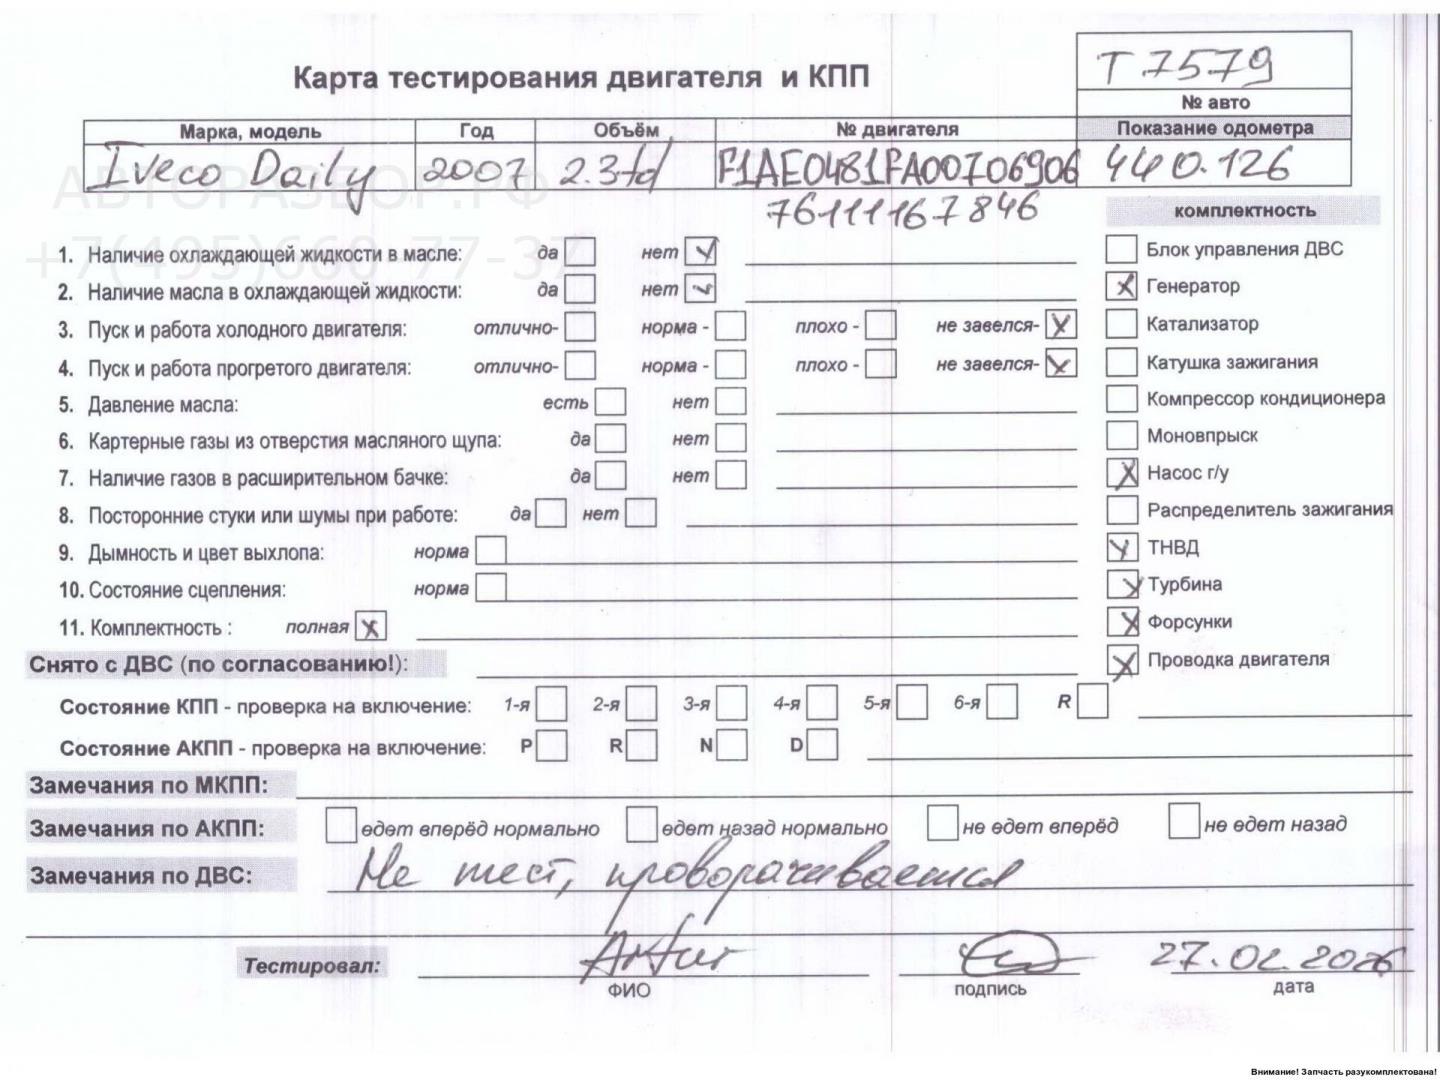 Т 7579
Карта тестирования двигателя и КПП
№ авто
Марка, модель Год Объём № двигателя Показание одометра
Iveco Daily 2007 2.3td F1AE0481FA00706906 440.126
76111167846 комплектность
АВТОРАЗБОР.РФ
+7(495)660-77-37
1. Наличие охлаждающей жидкости в масле: да нет Блок управления ДВС
2. Наличие масла в охлаждающей жидкости: да нет Генератор
3. Пуск и работа холодного двигателя: отлично- норма - плохо - не завелся- Катализатор
4. Пуск и работа прогретого двигателя: отлично- норма - плохо - не завелся- Катушка зажигания
5. Давление масла: есть нет Компрессор кондиционера
6. Картерные газы из отверстия масляного щупа: да нет Моновпрыск
7. Наличие газов в расширительном бачке: да нет Насос г/у
8. Посторонние стуки или шумы при работе: да нет Распределитель зажигания
9. Дымность и цвет выхлопа: норма ТНВД
10. Состояние сцепления: норма Турбина
11. Комплектность : полная Форсунки
Снято с ДВС (по согласованию!): Проводка двигателя
Состояние КПП - проверка на включение: 1-я 2-я 3-я 4-я 5-я 6-я R
Состояние АКПП - проверка на включение: P R N D
Замечания по МКПП:
Замечания по АКПП: едет вперёд нормально едет назад нормально не едет вперёд не едет назад
Замечания по ДВС: Не тест, проворачивается
Тестировал: Artur 27.02.2026
ФИО подпись дата
Внимание! Запчасть разукомплектована!